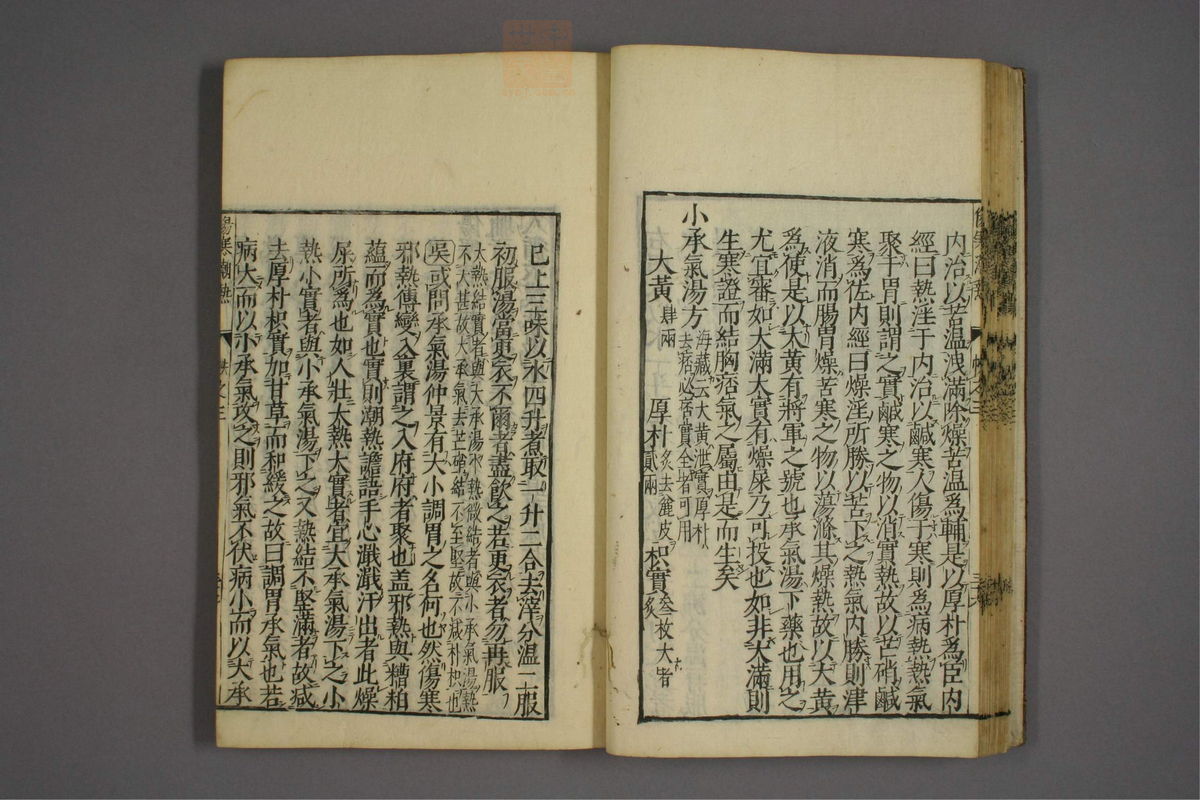 內治以苦溫洩滿除燥苦溫爲輔是以厚朴爲臣內
經曰熱淫于內治以鹹寒人傷于寒則爲病熱熱氣
聚于胃則謂之實鹹寒之物以消實熱故以芒硝鹹
寒爲佐內經曰燥淫所勝以苦下之熱氣內勝則津
液消而腸胃燥苦寒之物以蕩滌其燥熱故以大黃
爲使是以大黃有將軍之號也承氣湯下藥也用之
尤宜審如大滿大實有燥屎乃可投也如非大滿則
生寒證而結胸痞氣之屬由是而生矣
小承氣湯方 海藏云大黃泄實厚朴
去痞必痞實全者可用
大黃肆兩 厚朴貳兩炙去麄皮 枳實叁枚大者炙
已上三味以水四升煮取一升二合去滓分溫二服
初服湯當更衣不爾者盡飮之若更衣者勿再服
大熱結實者與大承湯小熱微結者與小承氣湯熱
不大甚故大承氣去芒硝結不至堅故不減朴枳也
吳或問承氣湯仲景有大小調胃之名何也然傷寒
邪熱傳變入裏謂之入府府者聚也盖邪熱與糟粕
蘊而爲實也實則潮熱譫語手心濈濈汗出者此燥
屎所爲也如人壯大熱大實者宜大承氣湯下之小
熱小實者與小承氣湯下之又熱結不堅滿者故減
去厚朴枳實加甘草而和緩之故曰調胃承氣也若
病大而以小承氣攻之則邪氣不伏病小而以大承
傷寒潮熱